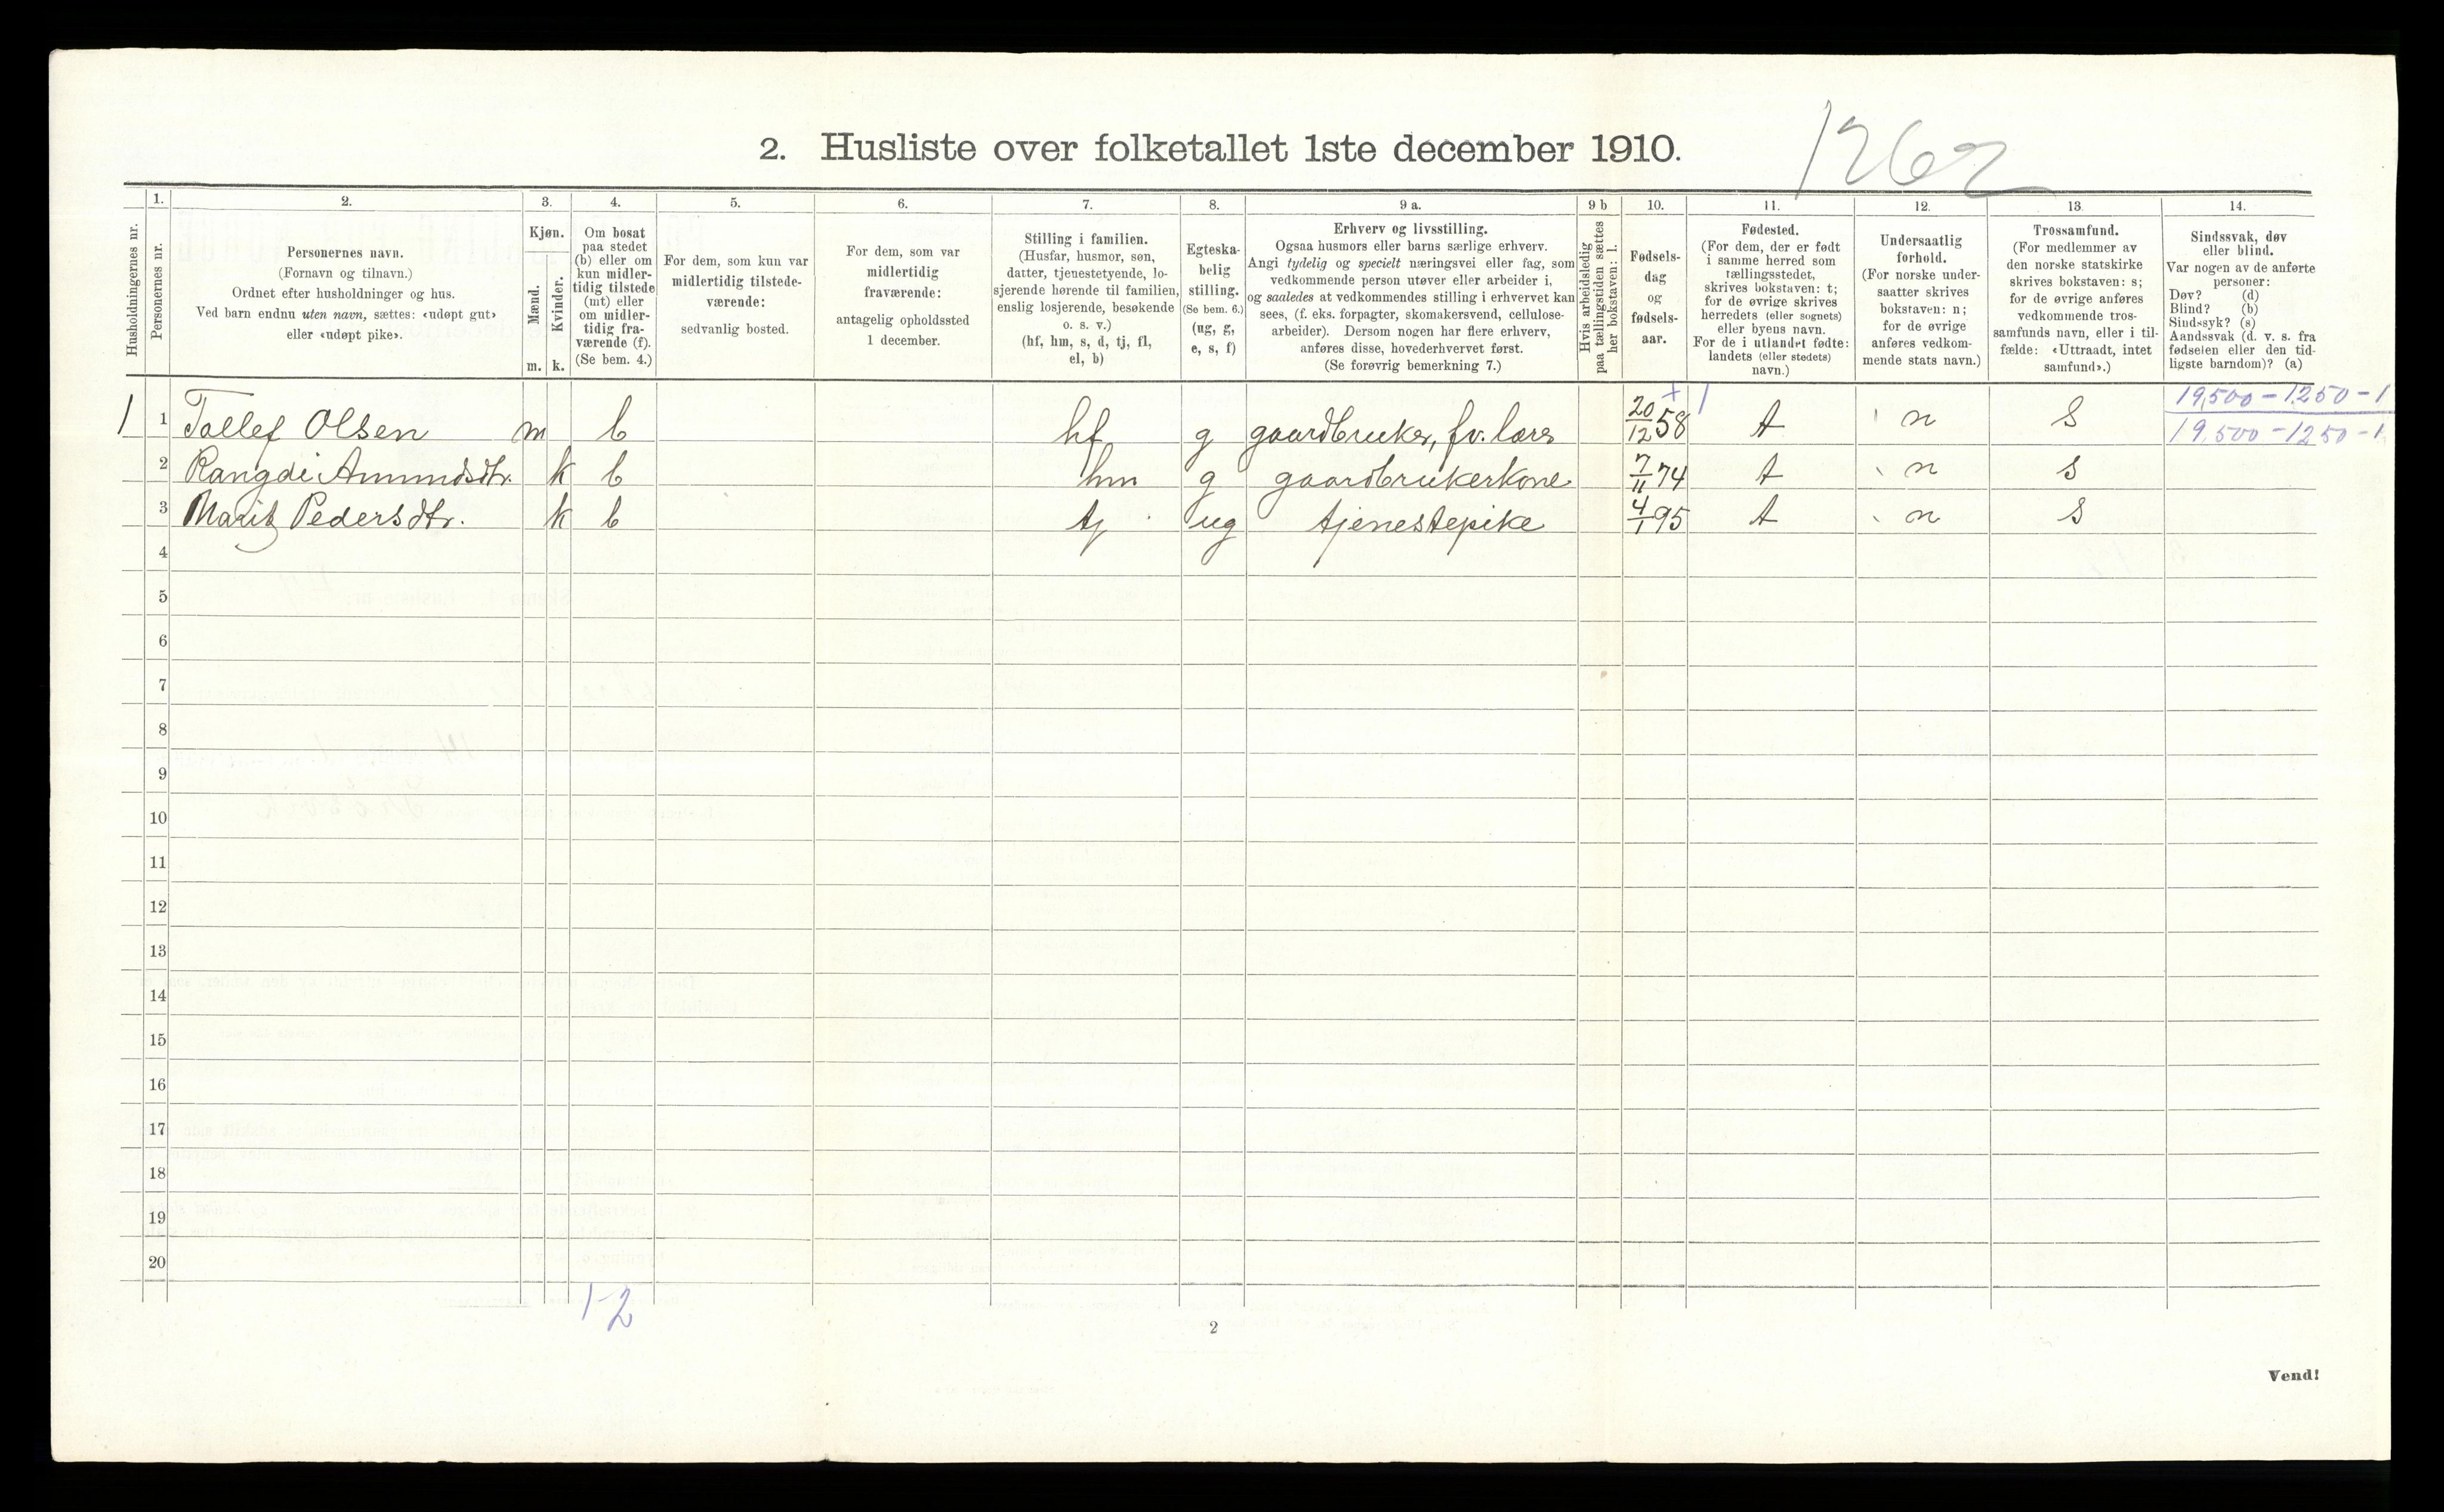 1262
2. Husliste over folketallet 1ste december 1910.
Husholdningernes nr.
1. Personernes nr.
2. Personernes navn.
(Fornavn og tilnavn.)
Ordnet efter husholdninger og hus.
Ved barn endnu uten navn, sættes: «udøpt gut»
eller «udøpt pike».
3. Kjøn.
Mænd. m.
Kvinder. k.
4. Om bosat
paa stedet
(b) eller om
kun midler-
tidig tilstede
(mt) eller
om midler-
tidig fra-
værende (f).
(Se bem. 4.)
5. For dem, som kun var
midlertidig tilstede-
værende:
sedvanlig bosted.
6. For dem, som var
midlertidig
fraværende:
antagelig opholdssted
1 december.
7. Stilling i familien.
(Husfar, husmor, søn,
datter, tjenestetyende, lo-
sjerende hørende til familien,
enslig losjerende, besøkende
o. s. v.)
(hf, hm, s, d, tj, fl,
el, b)
8. Egteska-
belig
stilling.
(Se bem. 6.)
(ug, g,
e, s, f)
9 a. Erhverv og livsstilling.
Ogsaa husmors eller barns særlige erhverv.
Angi tydelig og specielt næringsvei eller fag, som
vedkommende person utøver eller arbeider i,
og saaledes at vedkommendes stilling i erhvervet kan
sees, (f. eks. forpagter, skomakersvend, cellulose-
arbeider). Dersom nogen har flere erhverv,
anføres disse, hovederhvervet først.
(Se forøvrig bemerkning 7.)
9 b Hvis arbeidsledig
paa tællingstiden sættes
her bokstaven: l.
10. Fødsels-
dag
og
fødsels-
aar.
11. Fødested.
(For dem, der er født
i samme herred som
tællingsstedet,
skrives bokstaven: t;
for de øvrige skrives
herredets (eller sognets)
eller byens navn.
For de i utlandet fødte:
landets (eller stedets)
navn.)
12. Undersaatlig
forhold.
(For norske under-
saatter skrives
bokstaven: n;
for de øvrige
anføres vedkom-
mende stats navn.)
13. Trossamfund.
(For medlemmer av
den norske statskirke
skrives bokstaven: s;
for de øvrige anføres
vedkommende tros-
samfunds navn, eller i til-
fælde: «Uttraadt, intet
samfund».)
14. Sindssvak, døv
eller blind.
Var nogen av de anførte
personer:
Døv? (d)
Blind? (b)
Sindssyk? (s)
Aandssvak (d. v. s. fra
fødselen eller den tid-
ligste barndom)? (a)
19,500 - 1250 - 1
1 1 Tollef Olsen m b hf g gaardbruker, fv. lærer 20/12 58 t n s 19,500 - 1250 - 1
2 Rangdi Amundsdtr. k b hm g gaardbrukerkone 7/11 74 t n s
3 Marit Pedersdtr. k b tj ug tjenestepike 4/1 95 t n s
4
5
6
7
8
9
10
11
12
13
14
15
16
17
18
19
20
1-2
2
Vend!